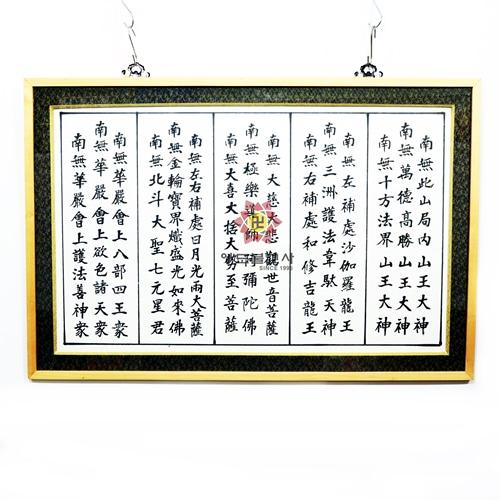 南無此山局內山王大神
南無萬德高勝山王大神
南無十方法界山王大神
南無左補處沙伽羅龍王
南無三洲護法韋馱天神
南無右補處和修吉龍王
南無大慈大悲觀世音菩薩
南無極樂導師阿彌陀佛
南無大喜大捨大勢至菩薩
南無左右補處日月光兩大菩薩
南無金輪寶界熾盛光如來佛
南無北斗大聖七元星君
南無華嚴會上八部四王衆
南無華嚴會上欲色諸天衆
南無華嚴會上護法善神衆
SINCE